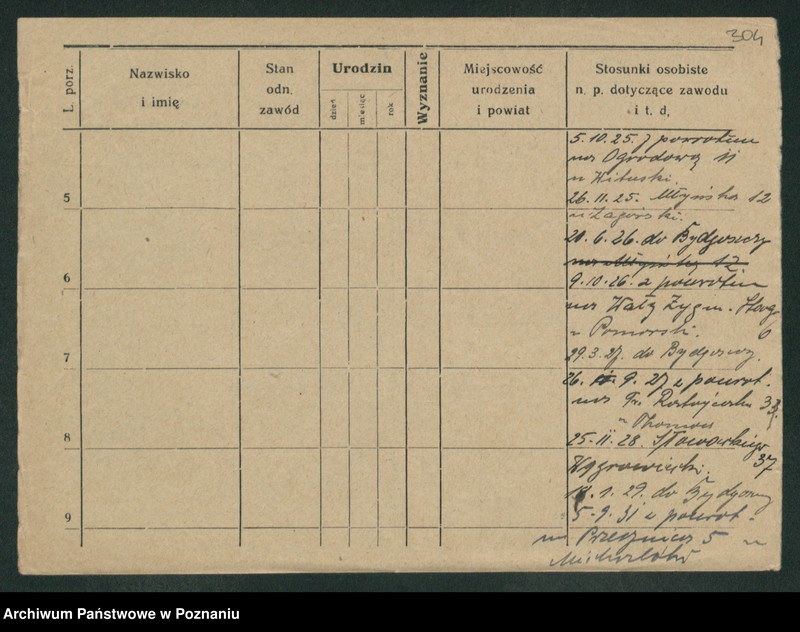 304
L. porz.
Nazwisko
i imię
Stan
odn.
zawód
Urodzin
dzień
miesiąc
rok
Wyznanie
Miejscowość
urodzenia
i powiat
Stosunki osobiste
n. p. dotyczące zawodu
i t. d.
5.10.25. z powrotem
na Ogrodową 11
u Wituski.
5
26.11.25. Młyńska 12
u Zagórski.
6
20.6.26. do Bydgoszczy
na Młyńską 12
9.10.26. z powrotem
na Wały Zygm. Starg.
u Pomorski. 6
7
29.3.27. do Bydgoszcz.
26. 9. 27 z powrot.
na Fr. Ratajczaka 33.
u Thomas
8
25.II.28. Słowackiego
Wągrowiecki. 37
1.29. do Bydgoszcz
9
5.9.31 z powrot.
na 5 u
Archiwum Państwowe w Poznaniu